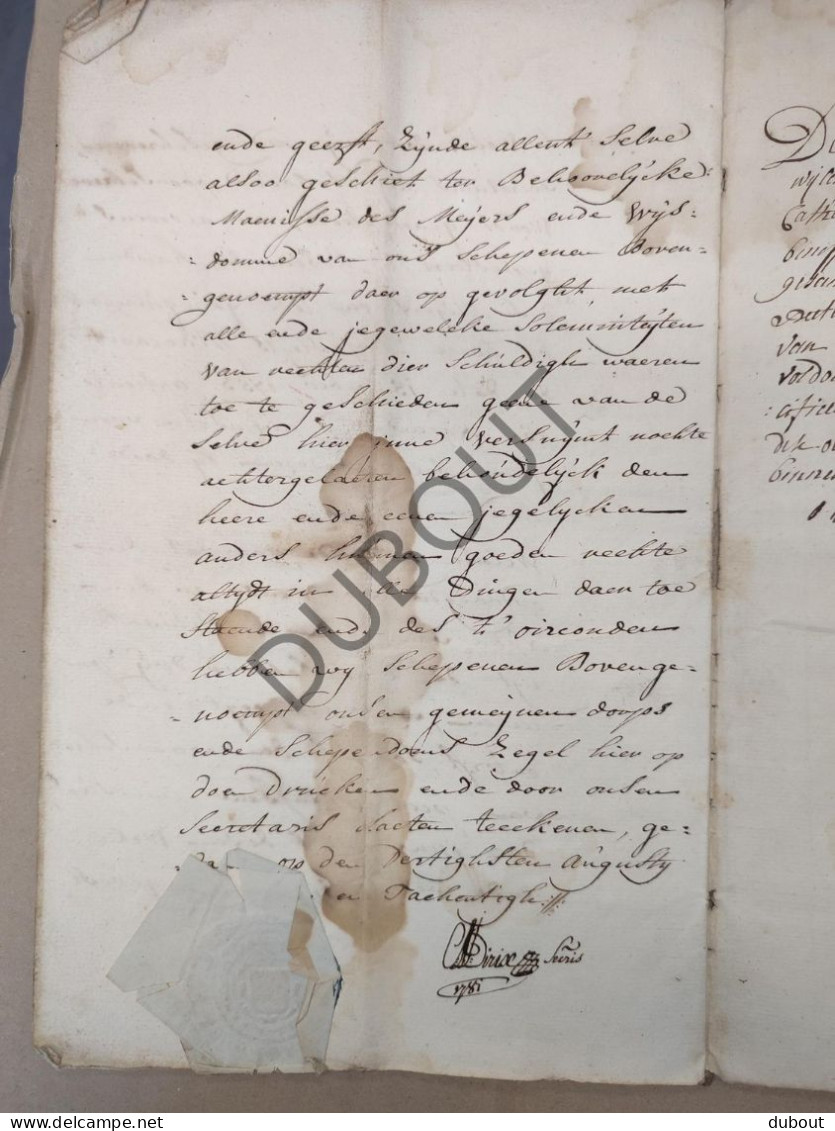 ende geeyst, Zynde allent' Selve
alsoo geschiet ter Behoorelycke:
Maenisse des Meyers ende Wys-
=domme van ons Schepenen Boven-
=genoempt daer op gevolght, met
alle ende jegewelcke Solemniteyten
van rechten dier Schuldigh waeren
toe te geschieden geene van de
Selve hier inne versuymt nochte
achtergelaeten behoudelyck den
heere ende eenen jegelycken
anders hunnen goeden rechte
altydt in Dingen daer toe
Staende ende des t' oirconden
hebben wy Schepenen Bovenge-
=noempt onsen gemeynen dorps
ende Schependoms Zegel hier op
doen drucken ende door onsen
Secretaris laeten teeckenen, ge-
daen op den dertighsten Augusty
en Tachentigh:
Dirix Secris
1781
DUBOUT
delcampe.net
dubout